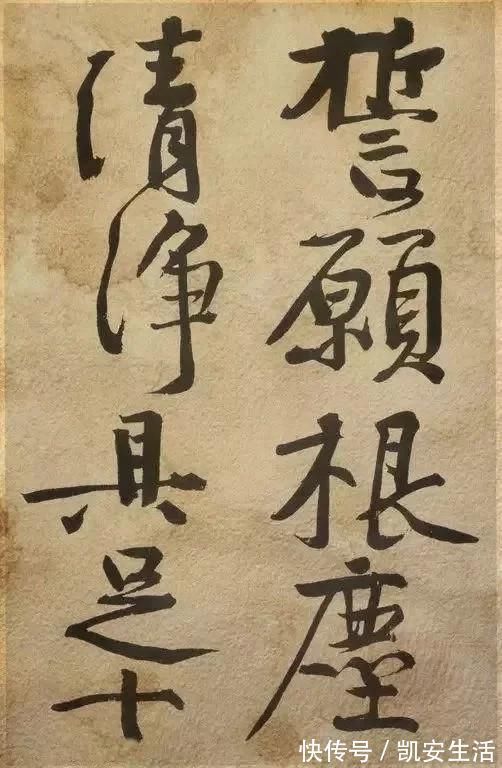 誓願根塵
清淨具足十
快传号 / 凯安生活